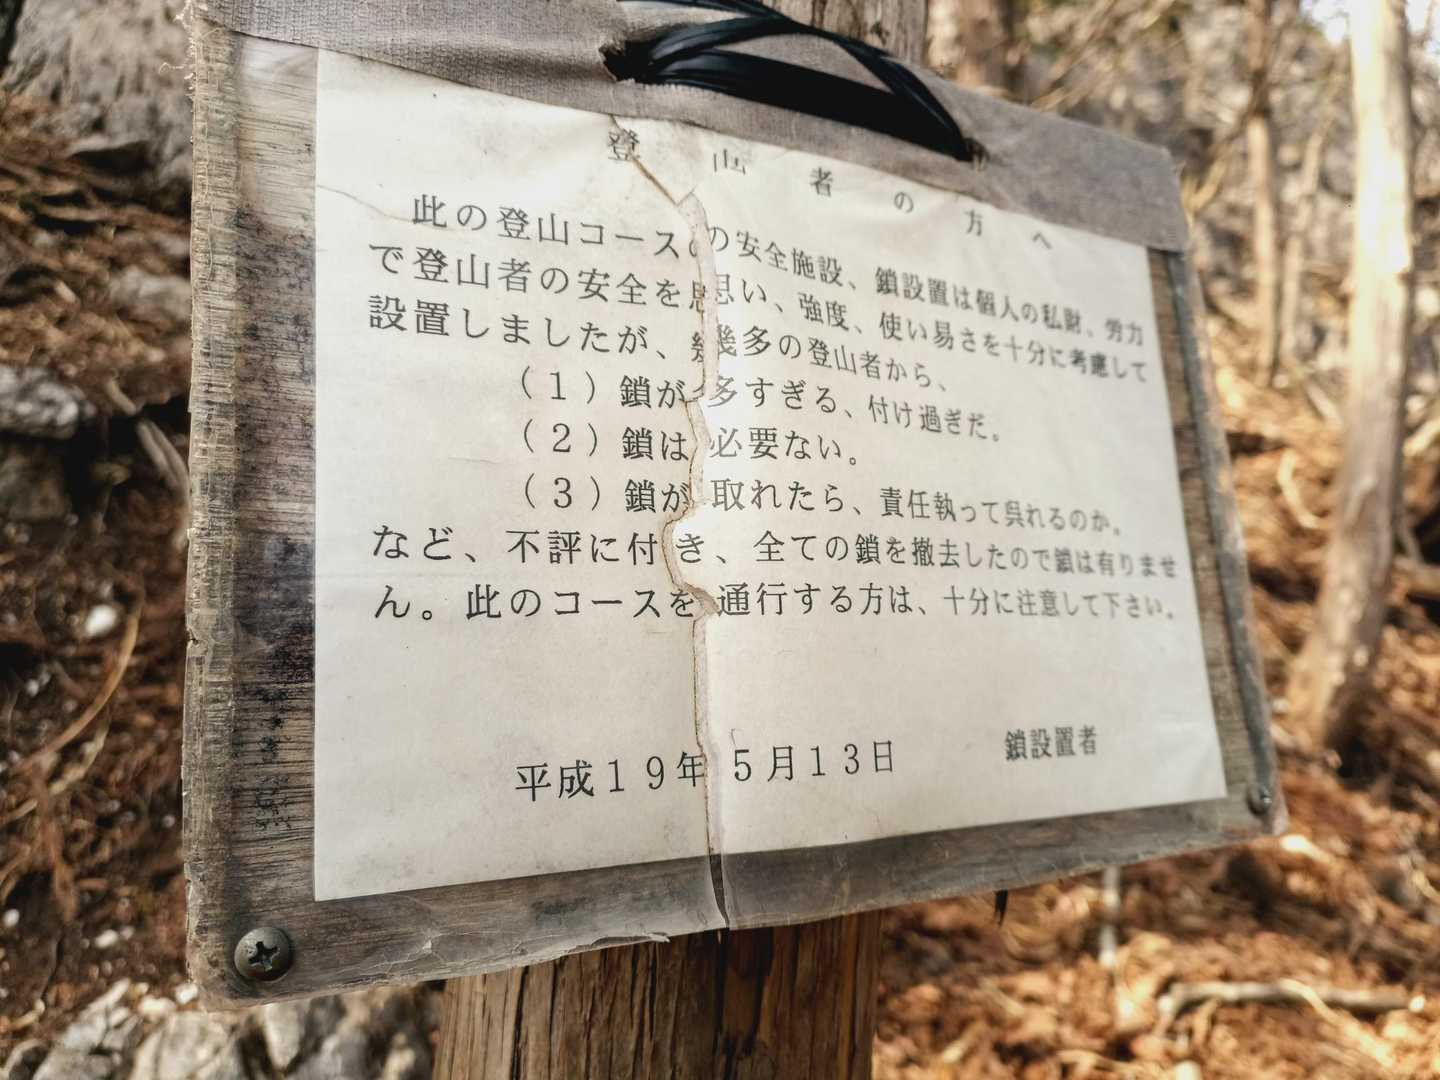 登山者の方へ
此の登山コースの安全施設、鎖設置は個人の私財、労力
で登山者の安全を思い、強度、使い易さを十分に考慮して
設置しましたが、幾多の登山者から、
（１）鎖が多すぎる、付け過ぎだ。
（２）鎖は必要ない。
（３）鎖が取れたら、責任執って呉れるのか。
など、不評に付き、全ての鎖を撤去したので鎖は有りませ
ん。此のコースを通行する方は、十分に注意して下さい。
平成１９年５月１３日　鎖設置者